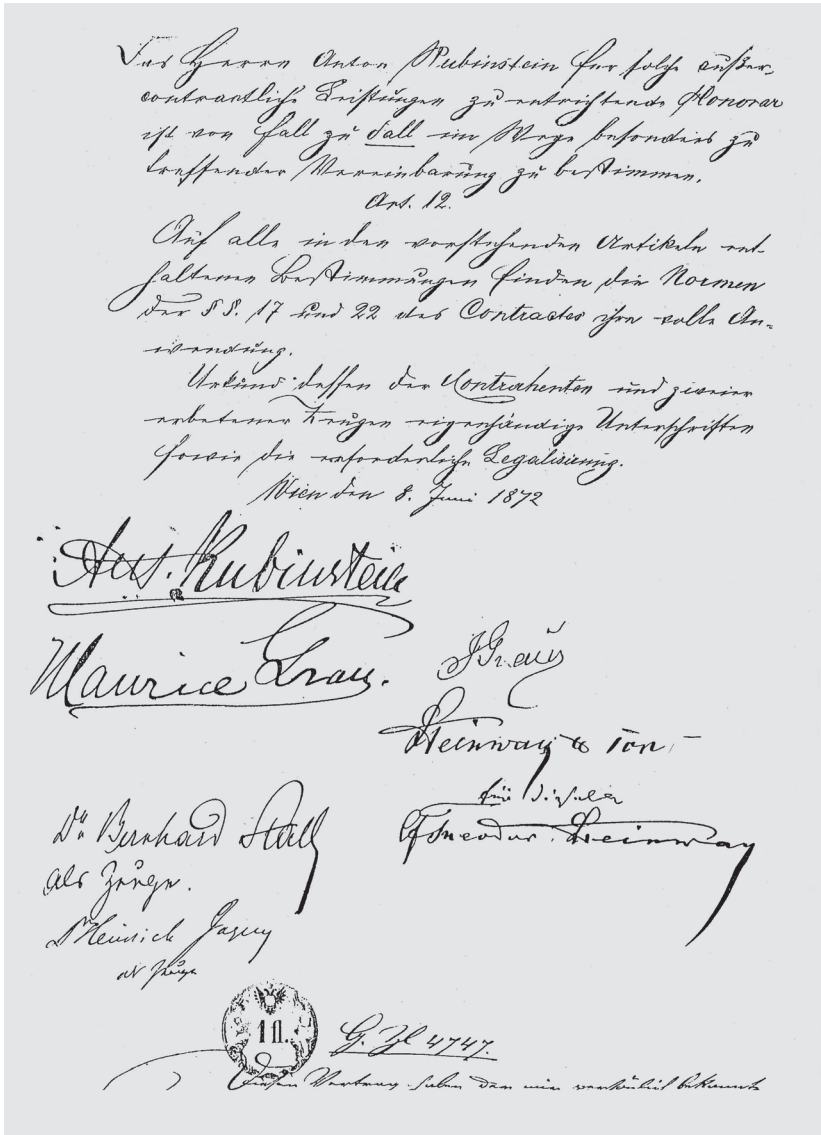 Das Herrn Anton Rubinstein für solche außer-
contractliche Leistungen zu entrichtende Honorar
ist von Fall zu Fall im Wege besonders zu
treffender Vereinbarung zu bestimmen.
Art. 12.
Auf alle in den vorstehenden Artikeln ent-
haltenen Bestimmungen finden die Normen
der §§. 17 und 22 des Contractes ihre volle An-
wendung.
Urkund dessen der Contrahenten und zweier
erbetener Zeugen eigenhändige Unterschriften
sowie die erforderliche Legalisirung.
Wien den 8. Juni 1872
Ant. Rubinstein
Maurice Grau.
JGrau
Steinway & Son
für dieselben
CFTheodor. Steinway
Dr. Bernhard
als Zeuge.
Dr Heinrich
als Zeuge
1 fl.
G. Zl 4747.
Diesen Vertrag haben der mir persönlich bekannte